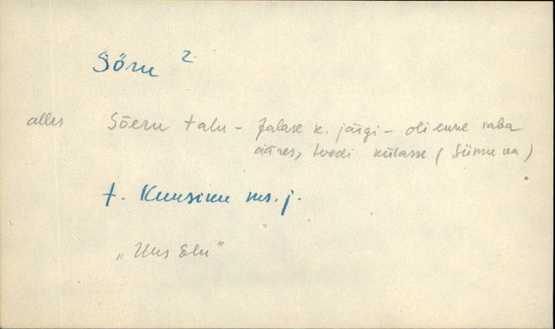 Sõru 2
alles Sõeru talu – Jalase k. järgi – oli enne raba
ääres, toodi külasse (Siimu va)
t. Kuusiku ms. j.
„Uus Elu”